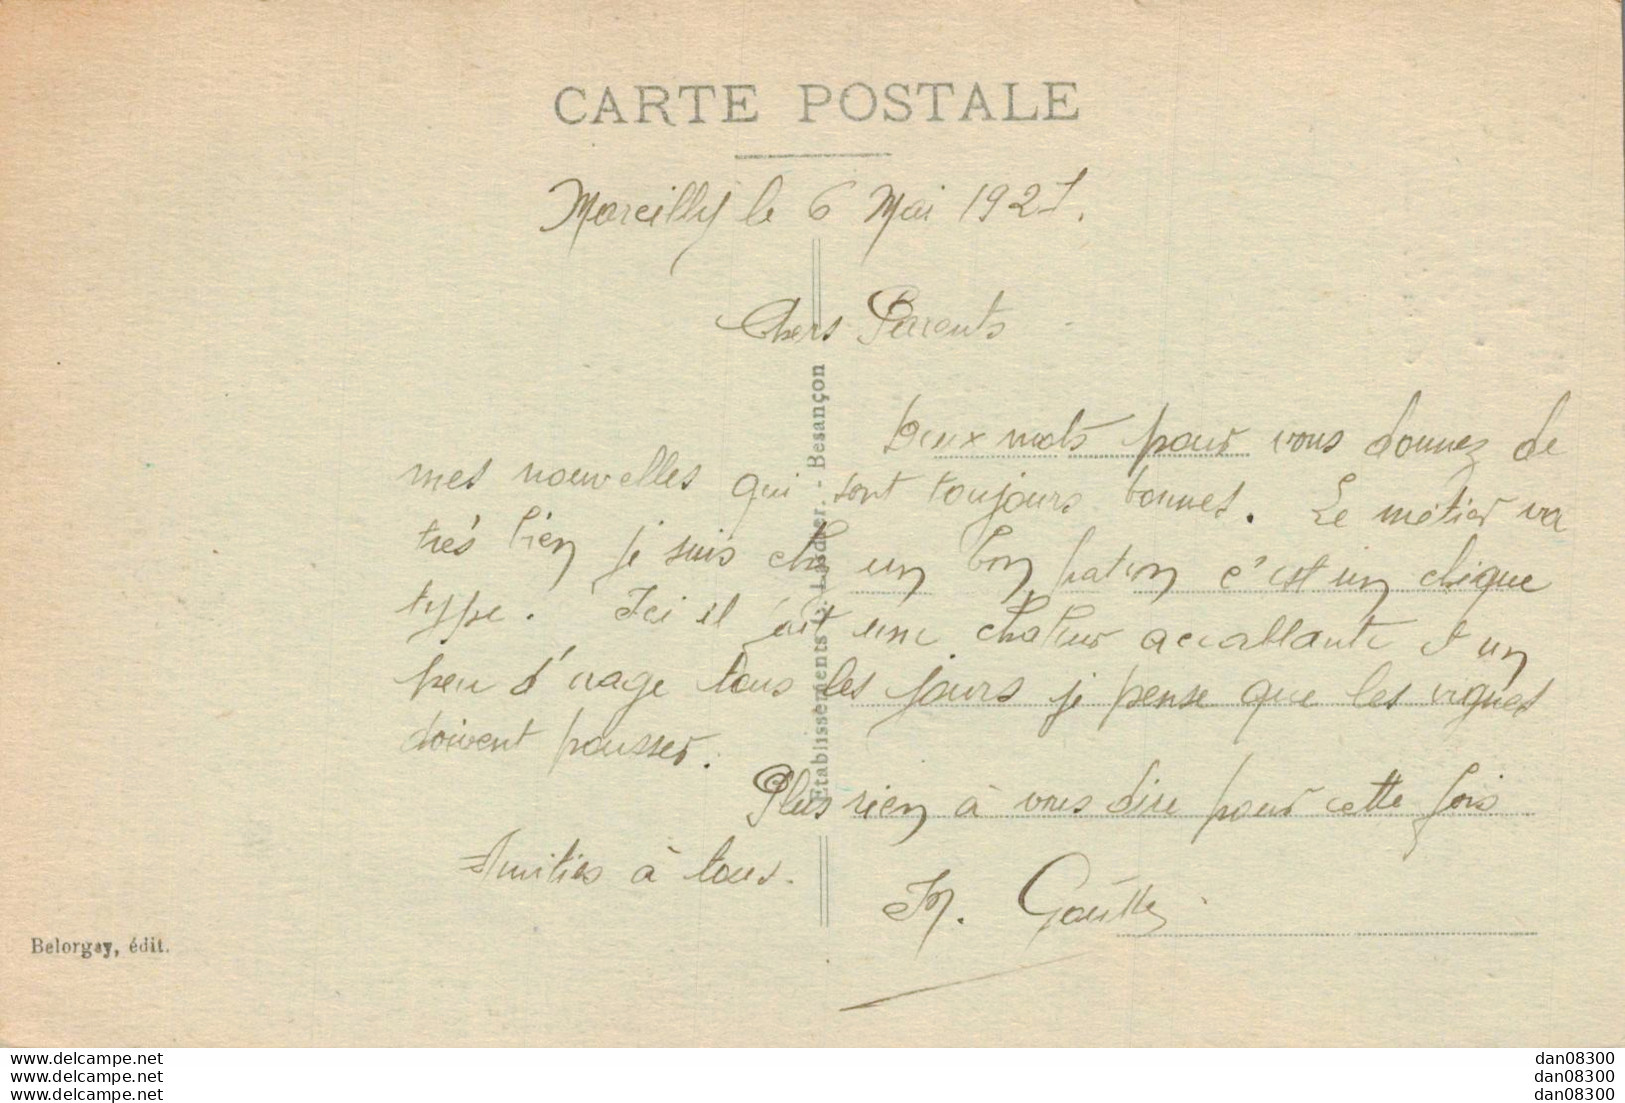 CARTE POSTALE
Marcilly le 6 Mai 1927.
Chers Parents
Deux mots pour vous donnez de
mes nouvelles qui sont toujours bonnes. Le métier va
très bien je suis chez un bon patron c'est un chique
type. Ici il fait une chaleur accallante et un
peu d'orage tous les jours je pense que les vignes
doivent pousser.
Plus rien à vous dire pour cette fois
Amitiés à tous.
M.
Etablissements C. Lardier. - Besançon
Belorgey, édit.
www.delcampe.net
www.delcampe.net
www.delcampe.net
dan08300
dan08300
dan08300